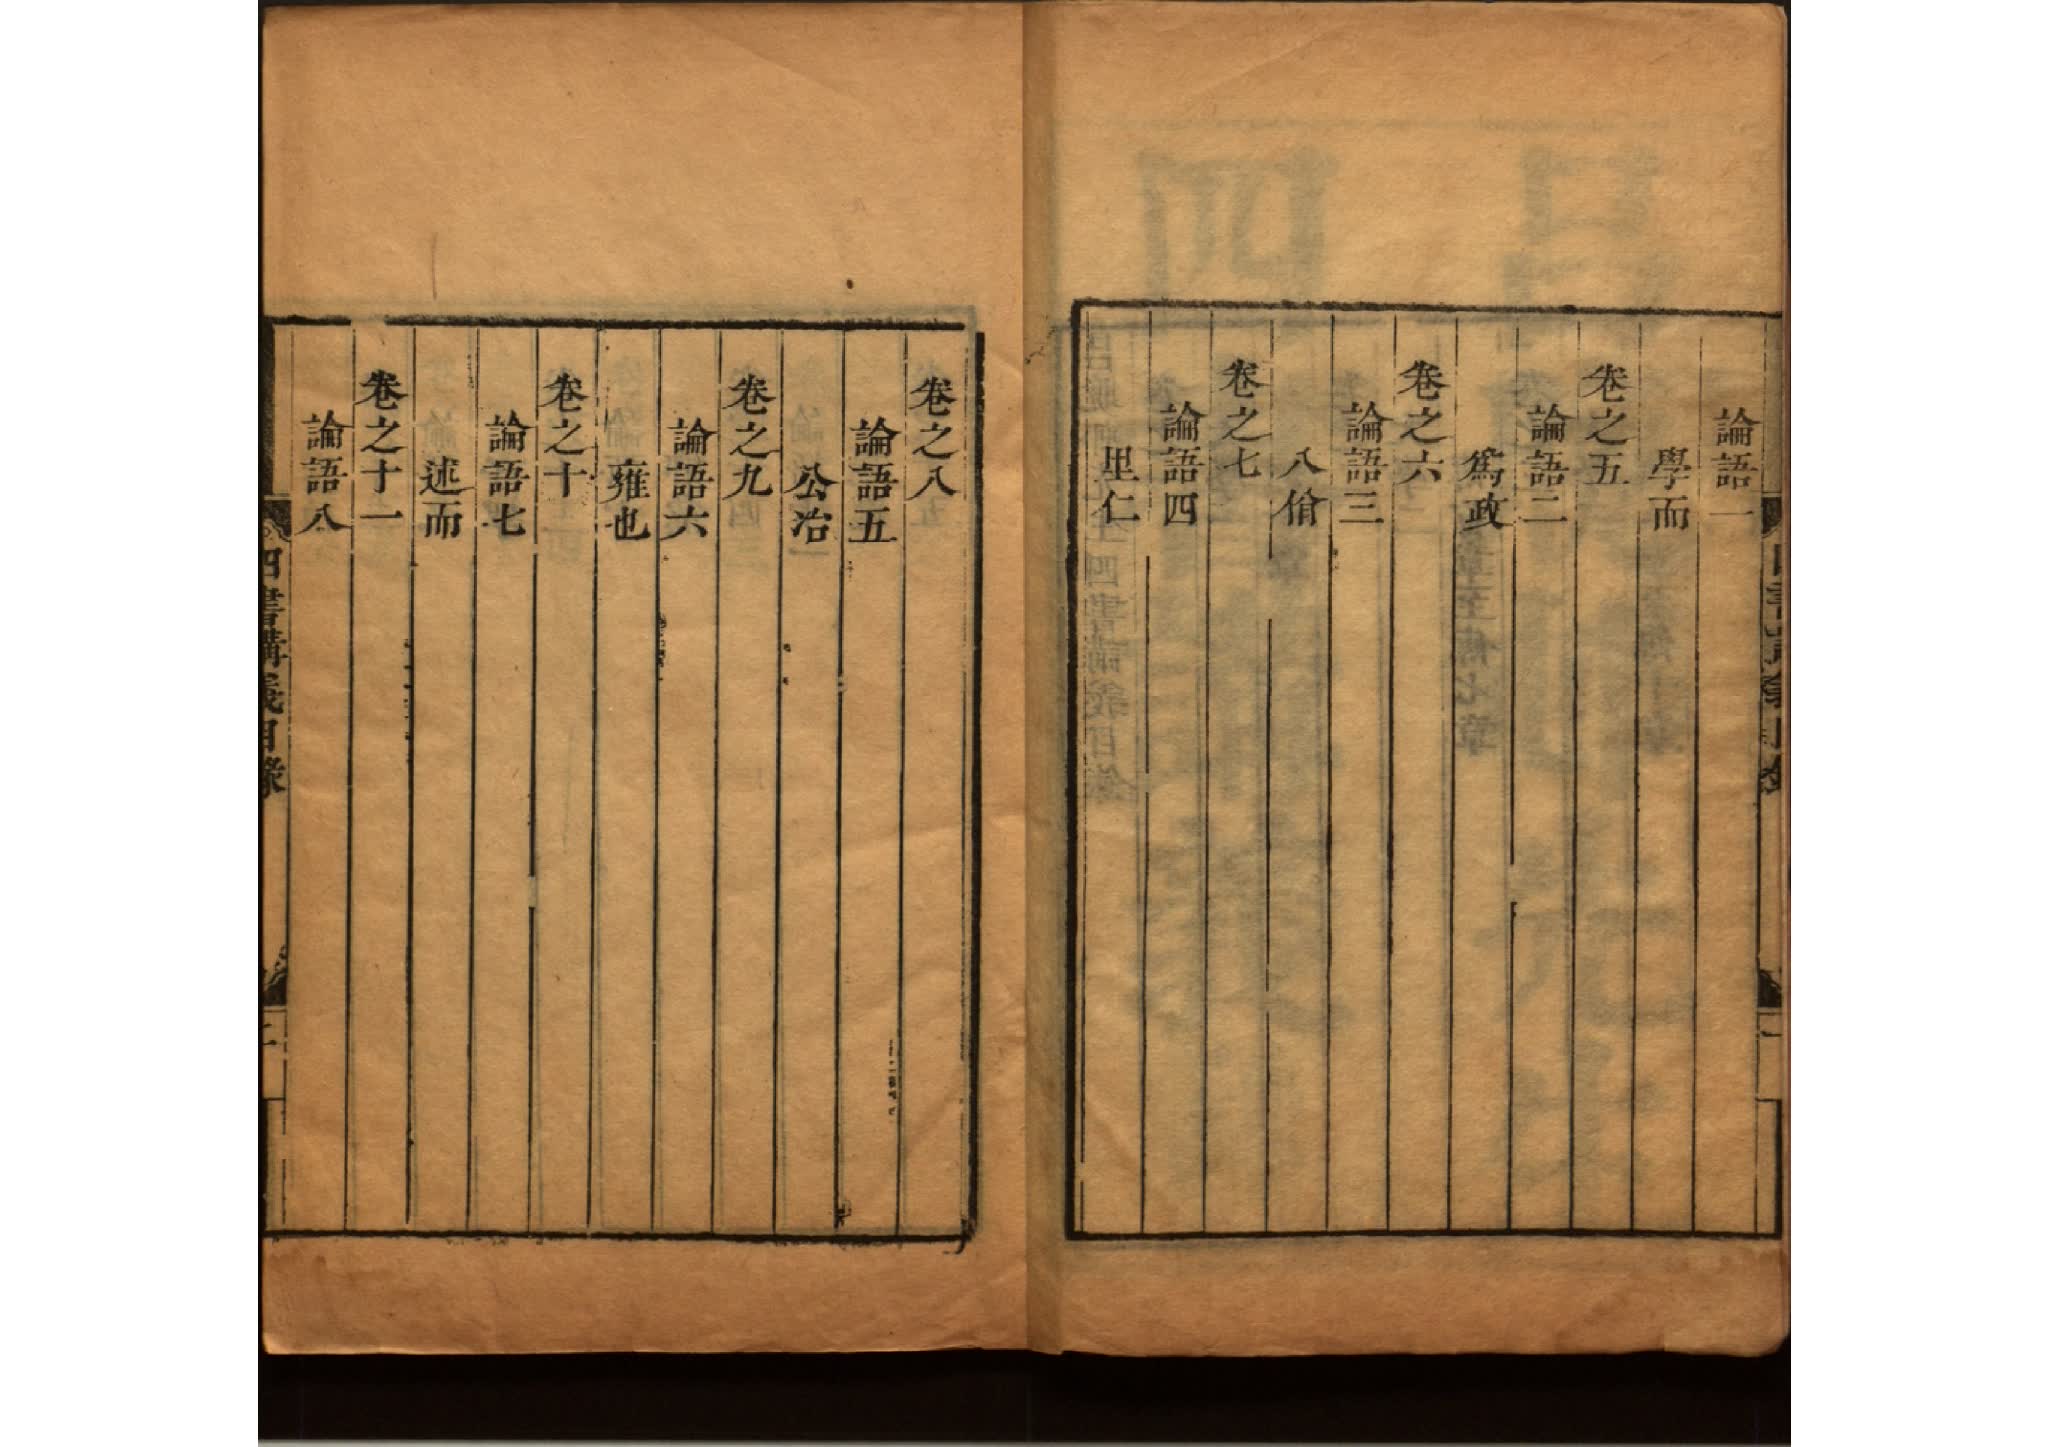 論語一
學而
卷之五
論語二
爲政
卷之六
論語三
八佾
卷之七
論語四
里仁
卷之八
論語五
公冶
卷之九
論語六
雍也
卷之十
論語七
述而
卷之十一
論語八
四書講義目錄